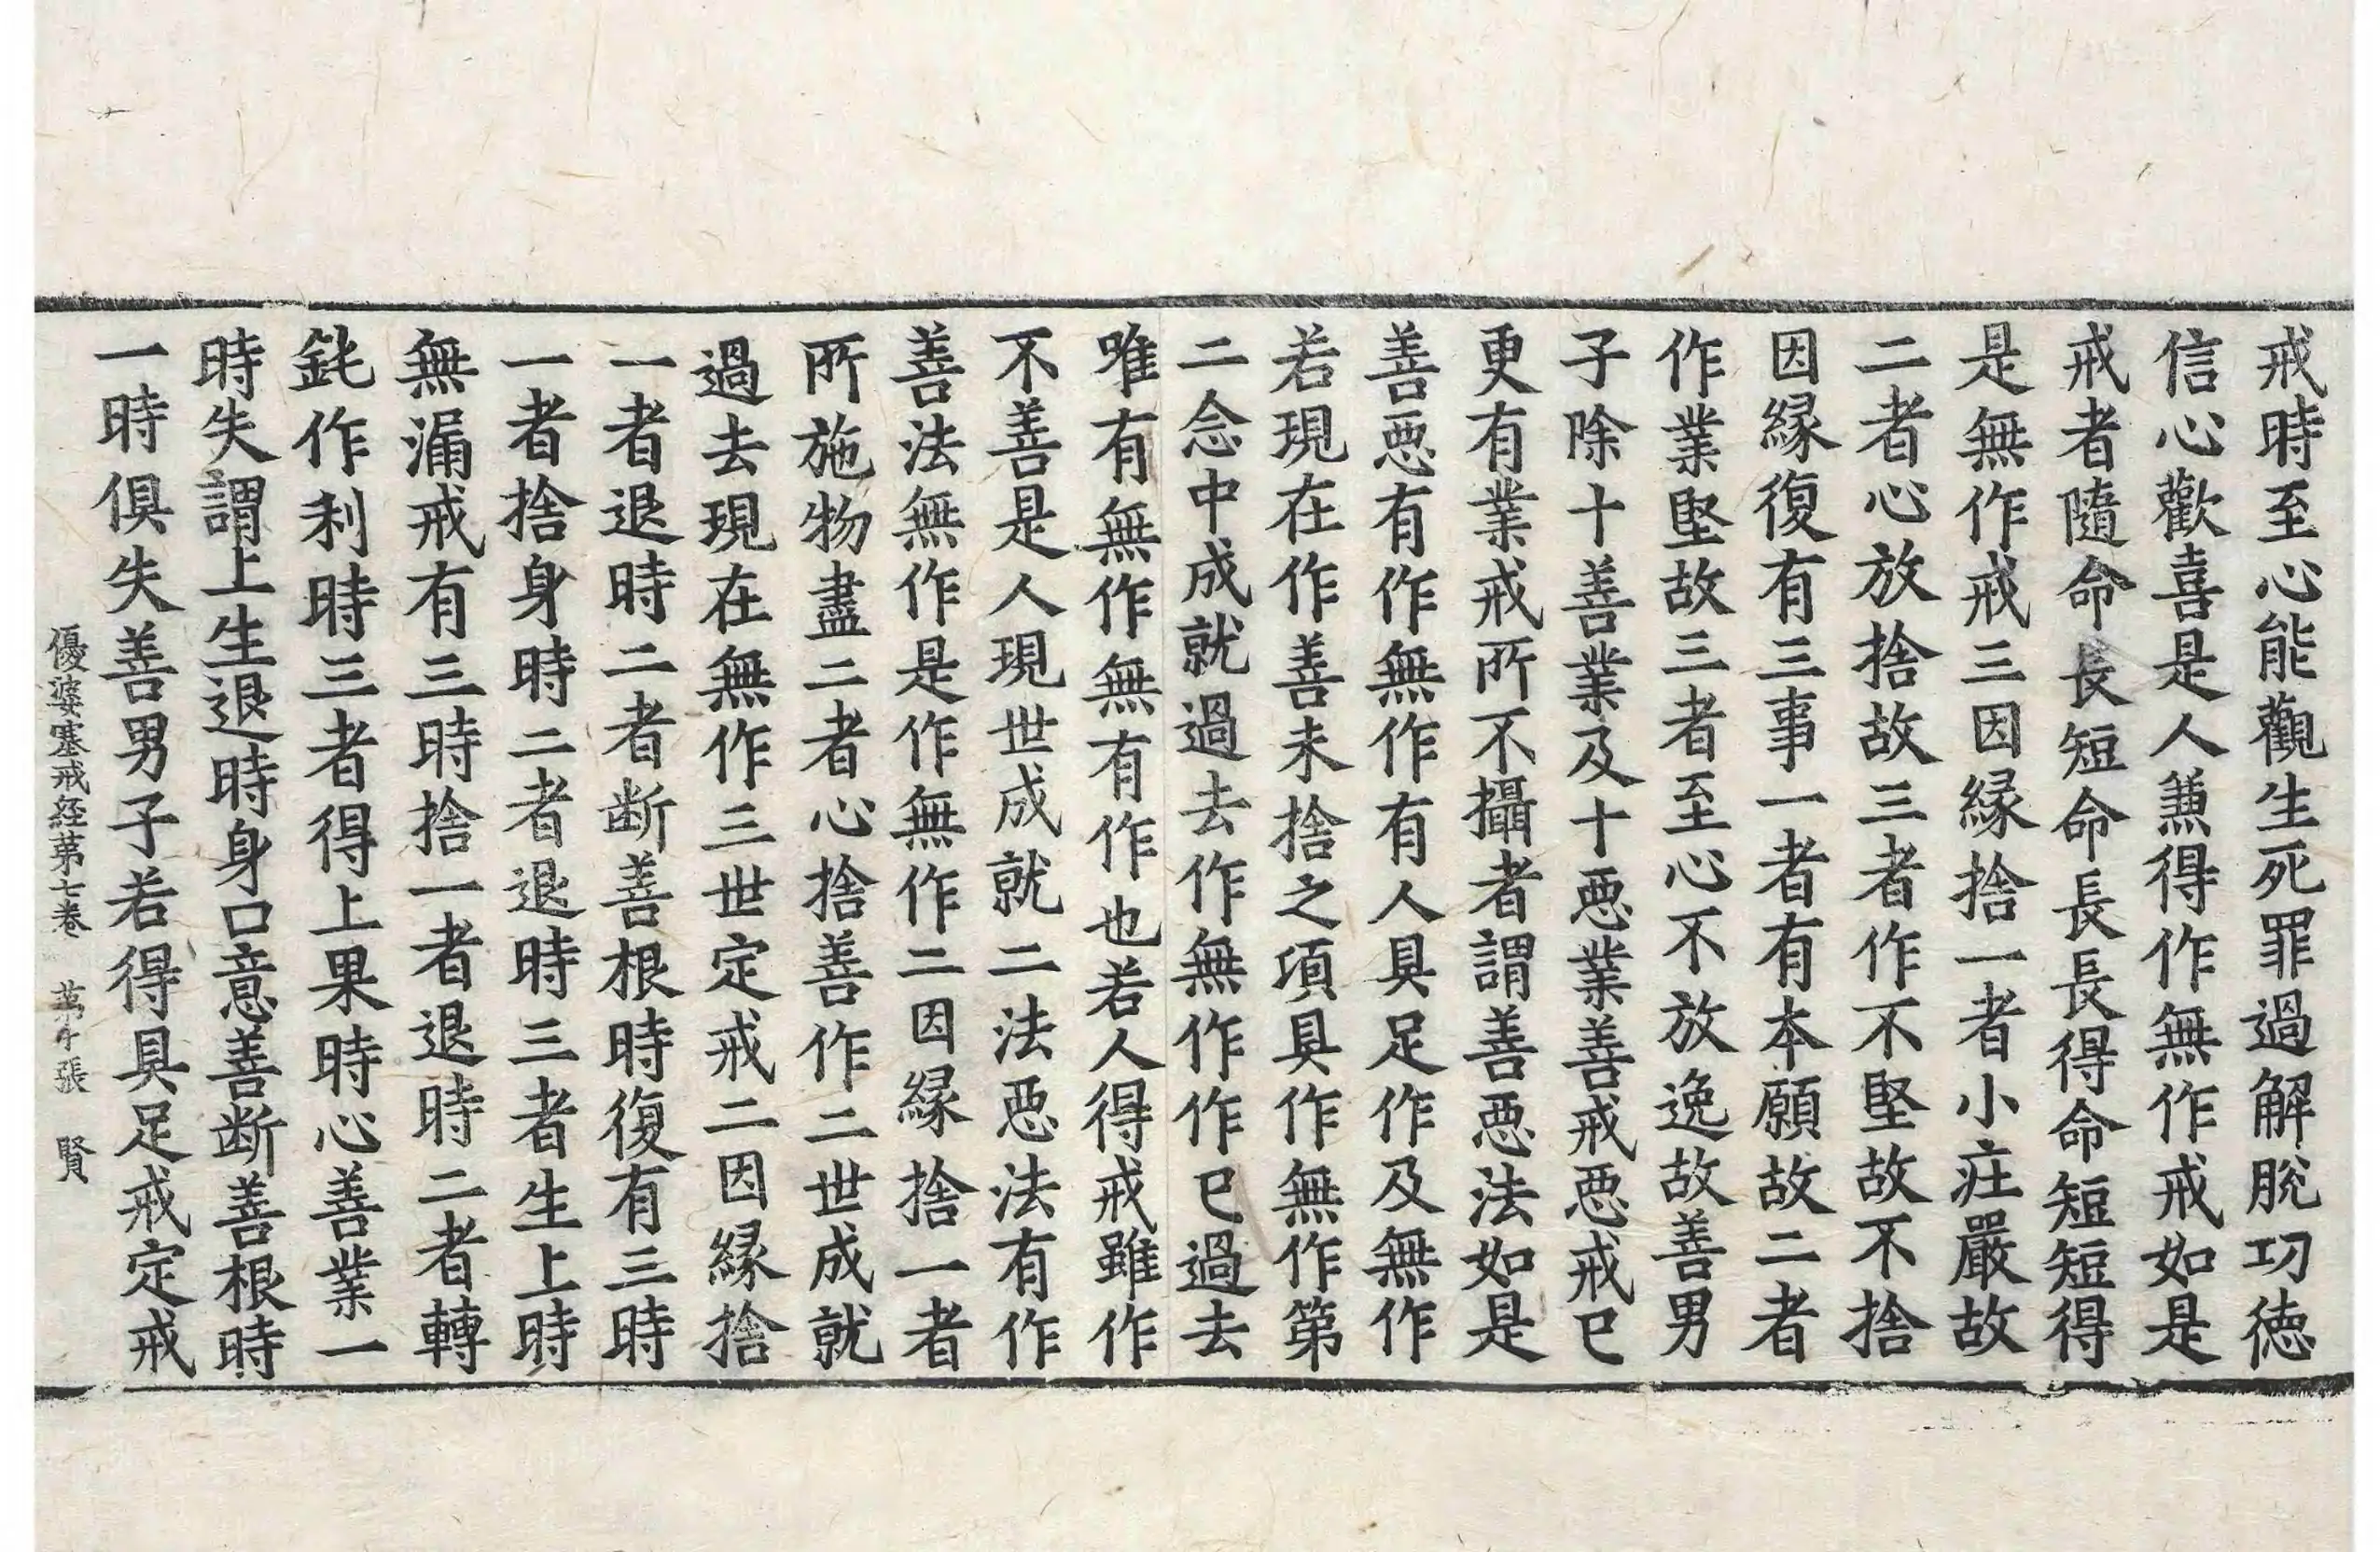 戒時至心能觀生死罪過解脫功德
信心歡喜是人兼得作無作戒如是
戒者隨命長短命長長得命短短得
是無作戒三因緣捨一者小莊嚴故
二者心放捨故三者作不堅故不捨
因緣復有三事一者有本願故二者
作業堅故三者至心不放逸故善男
子除十善業及十惡業善戒惡戒已
更有業戒所不攝者謂善惡法如是
善惡有作無作有人具足作及無作
若現在作善未捨之項具作無作第
二念中成就過去作無作作已過去
唯有無作無有作也若人得戒雖作
不善是人現世成就二法惡法有作
善法無作是作無作二因緣捨一者
所施物盡二者心捨善作二世成就
過去現在無作三世定戒二因緣捨
一者退時二者断善根時復有三時
一者捨身時二者退時三者生上時
無漏戒有三時捨一者退時二者轉
鈍作利時三者得上果時心善業一
時失謂上生退時身口意善断善根時
一時俱失善男子若得具足戒定戒
優婆塞戒経第七卷 第 張 賢